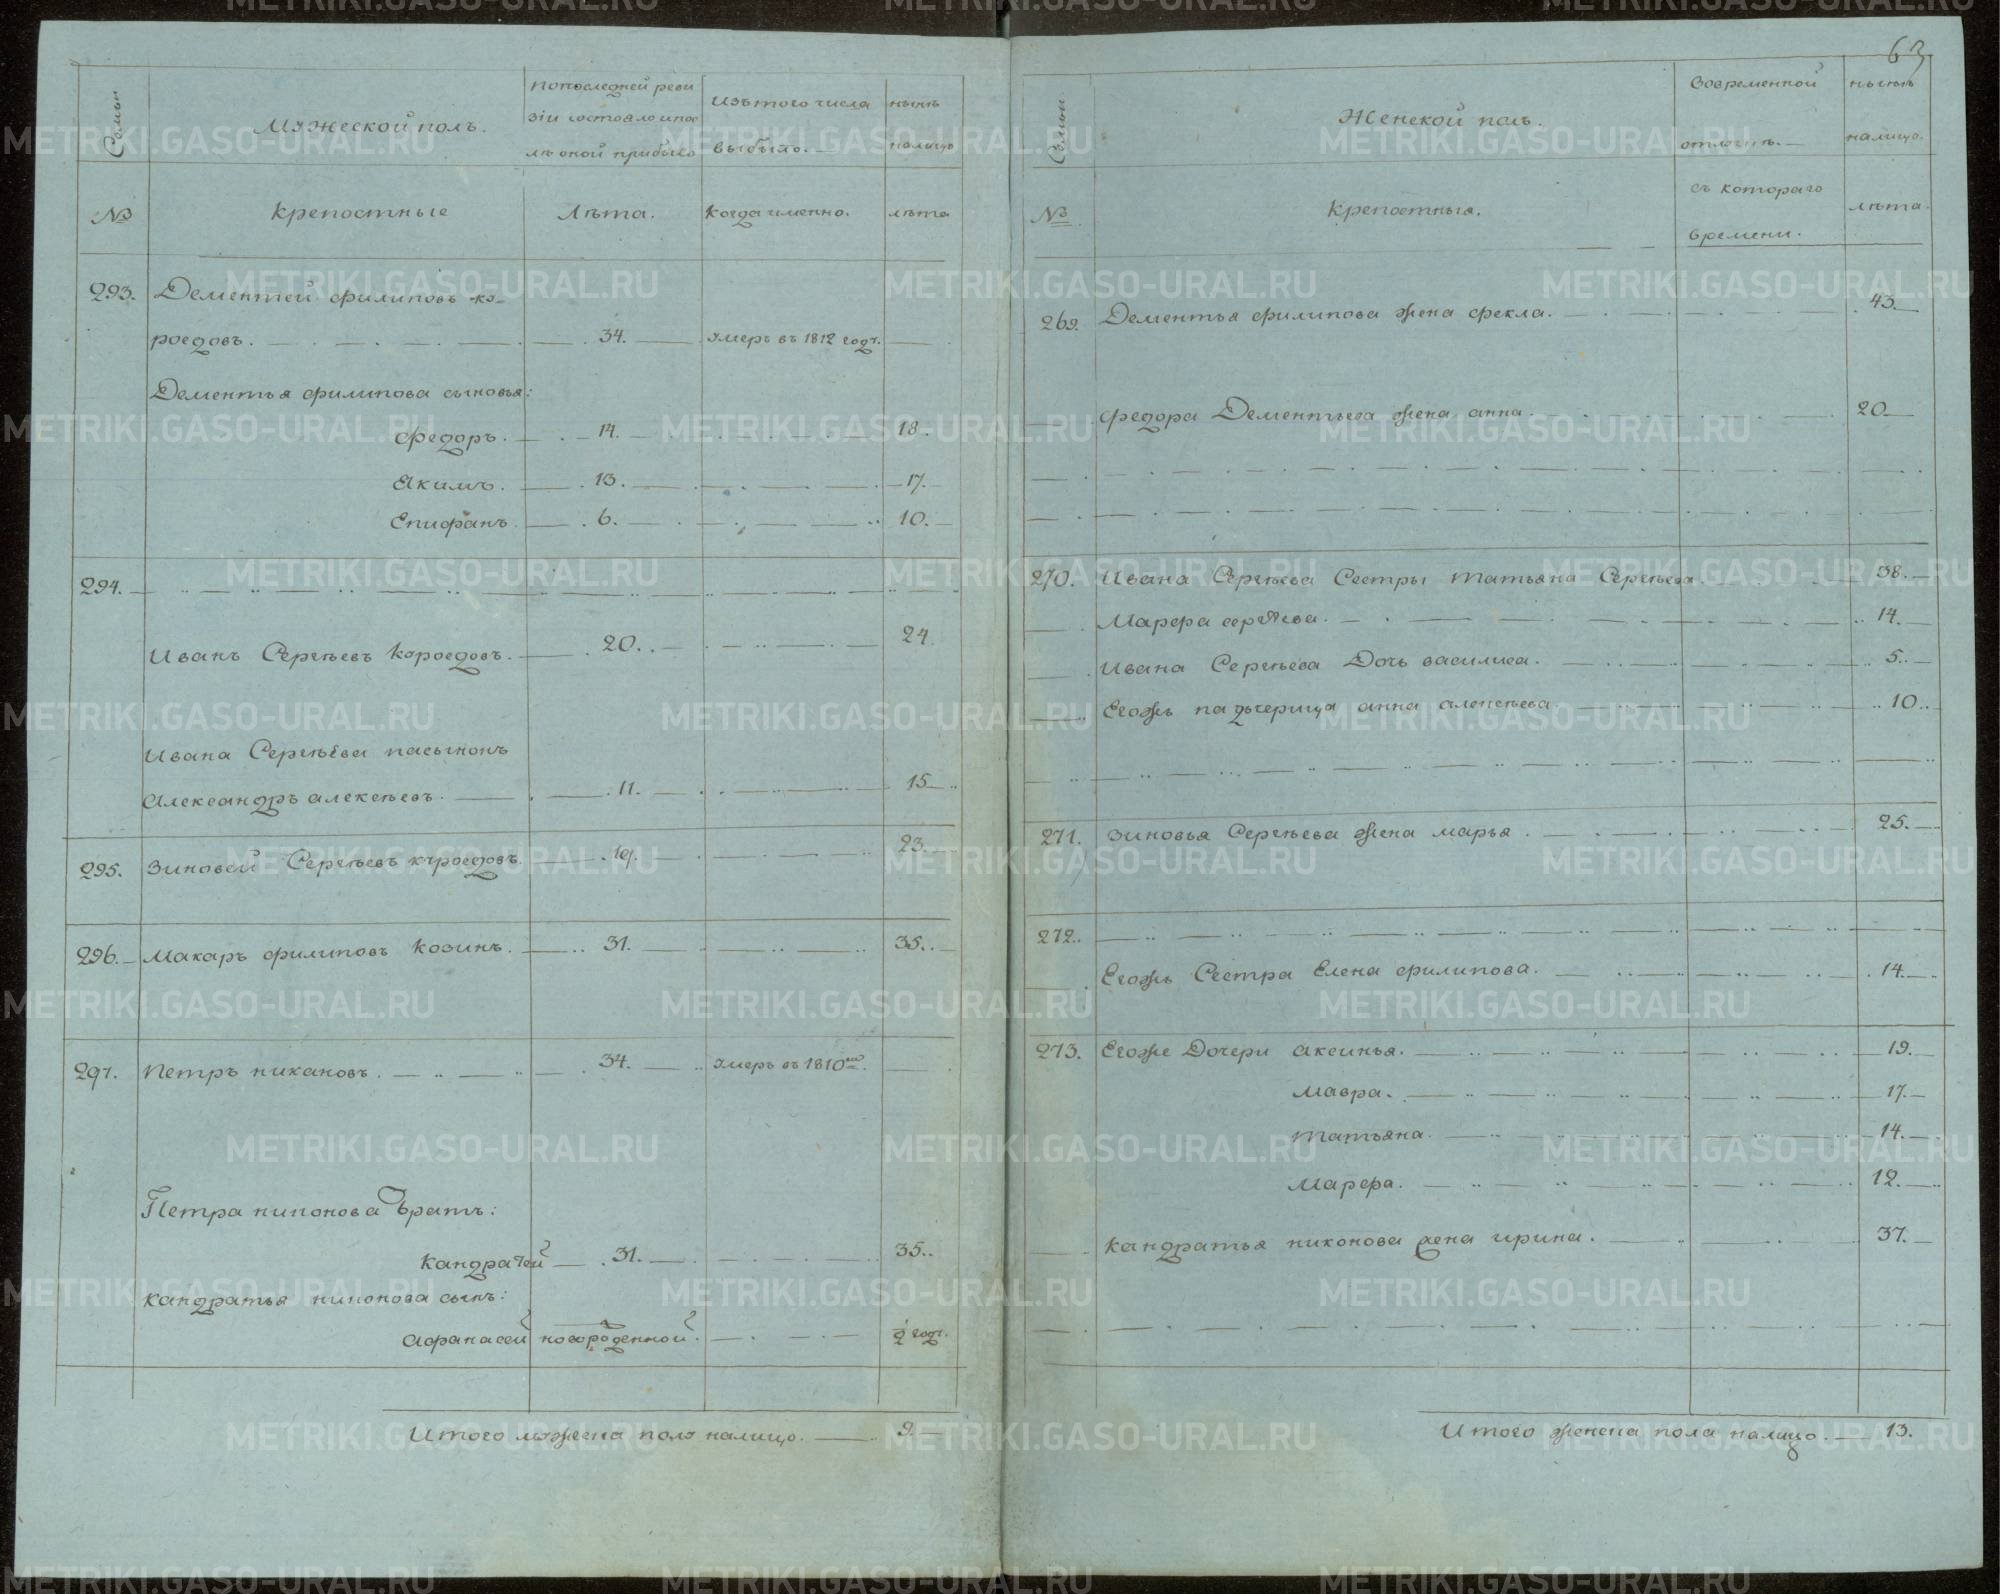 63
Семьи
Мужеской полъ.
попоследней реви
зіи состояло ипос
лѣ оной прибыло
Изътого числа
выбыло.
нынѣ
налицо
№
крепостные
Лѣта.
когда имянно.
лѣта
293. Дементей филиповъ ко-
роедовъ. 34. умеръ въ 1812 годꙋ.
Дементья филипова сыновья:
Федоръ. 14. 18.
Якимъ. 13. 17.
Епифанъ. 6. 10.
294.
Иванъ Сергѣевъ короедовъ. 20. 24.
Ивана Сергѣева пасынокъ
Александръ алексѣевъ. 11. 15.
295. Зиновей Сергѣевъ короедовъ. 19. 23.
296. Макаръ филиповъ Козинъ. 31. 35.
297. Петръ никановъ. 34. умеръ въ 1810мъ.
Петра никонова братъ:
Кандратей 31. 35.
кандратья никонова сынъ:
Афранасей новороденной. 2 годꙋ.
Итого мужеска полу налицо. 9.
Семьи
Женской полъ.
Вовременной
отлучкѣ.
нынѣ
налицо.
№
крепостныя.
съ котораго
времени.
лѣта.
269. Дементья филипова жена фекла. 43.
федора Дементьева жена анна. 20
270. Ивана Сергѣева Сестры татьяна Сергѣева. 38.
Марфа сергѣева. 14.
Ивана Сергѣева Дочь василиса. 5.
Егожъ падчерица анна алексѣева. 10.
271. Зиновья Сергѣева жена марья. 25.
272.
Егожъ Сестра Елена филипова. 14.
273. Егоже Дочери аксинья. 19.
мавра. 17.
татьяна. 14.
марфа. 12.
кандратья никонова жена ирина. 37.
Итого женска пола налицо. 13.
METRIKI.GASO-URAL.RU